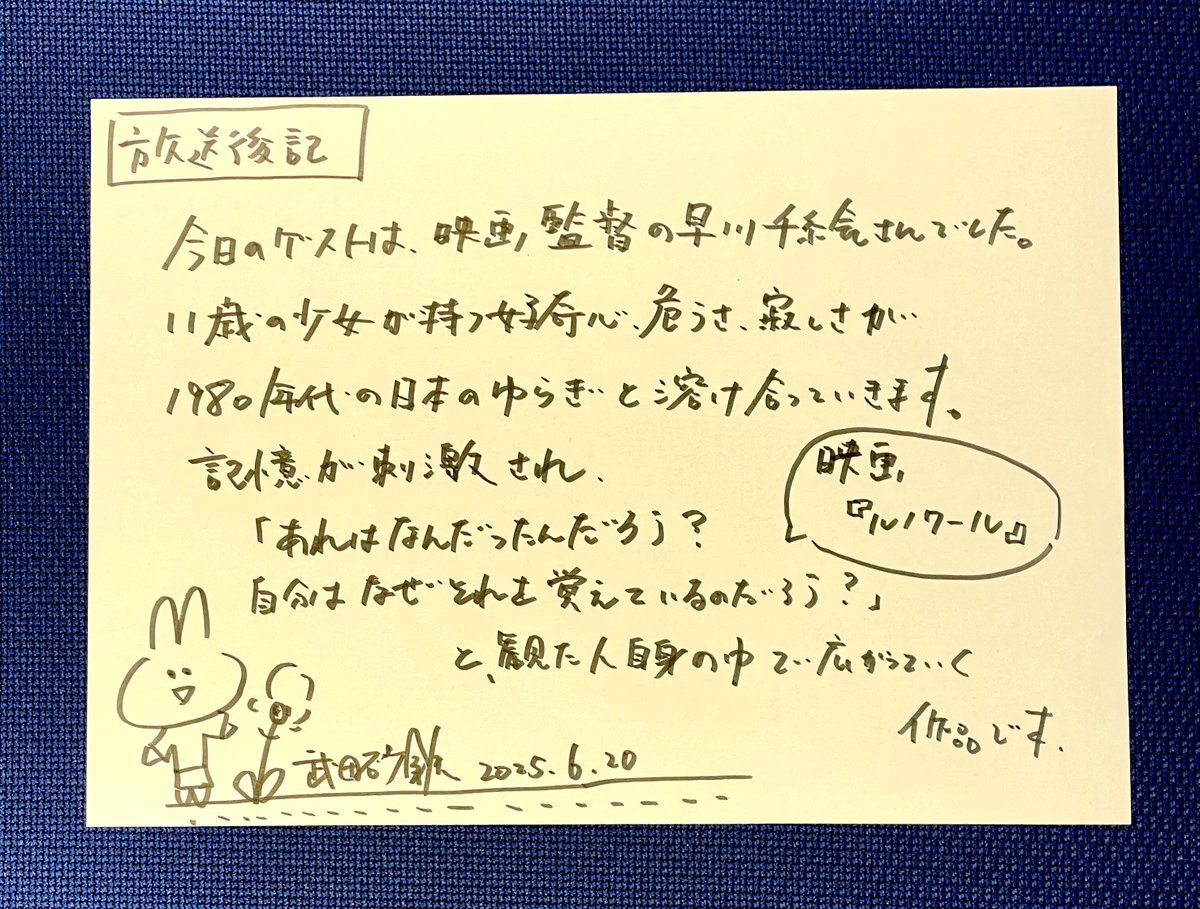 放送後記
今日のゲストは、映画監督の早川千絵さんでした。
11歳の少女が持つ好奇心、危うさ、寂しさが
1980年代の日本のゆらぎと溶け合っていきます。
記憶が刺激され、
「あれはなんだったんだろう?
自分はなぜそれを覚えているのだろう?」
と、観た人自身の中で広がっていく
作品です.
映画
『ルノワール』
武田砂鉄 2025.6.20